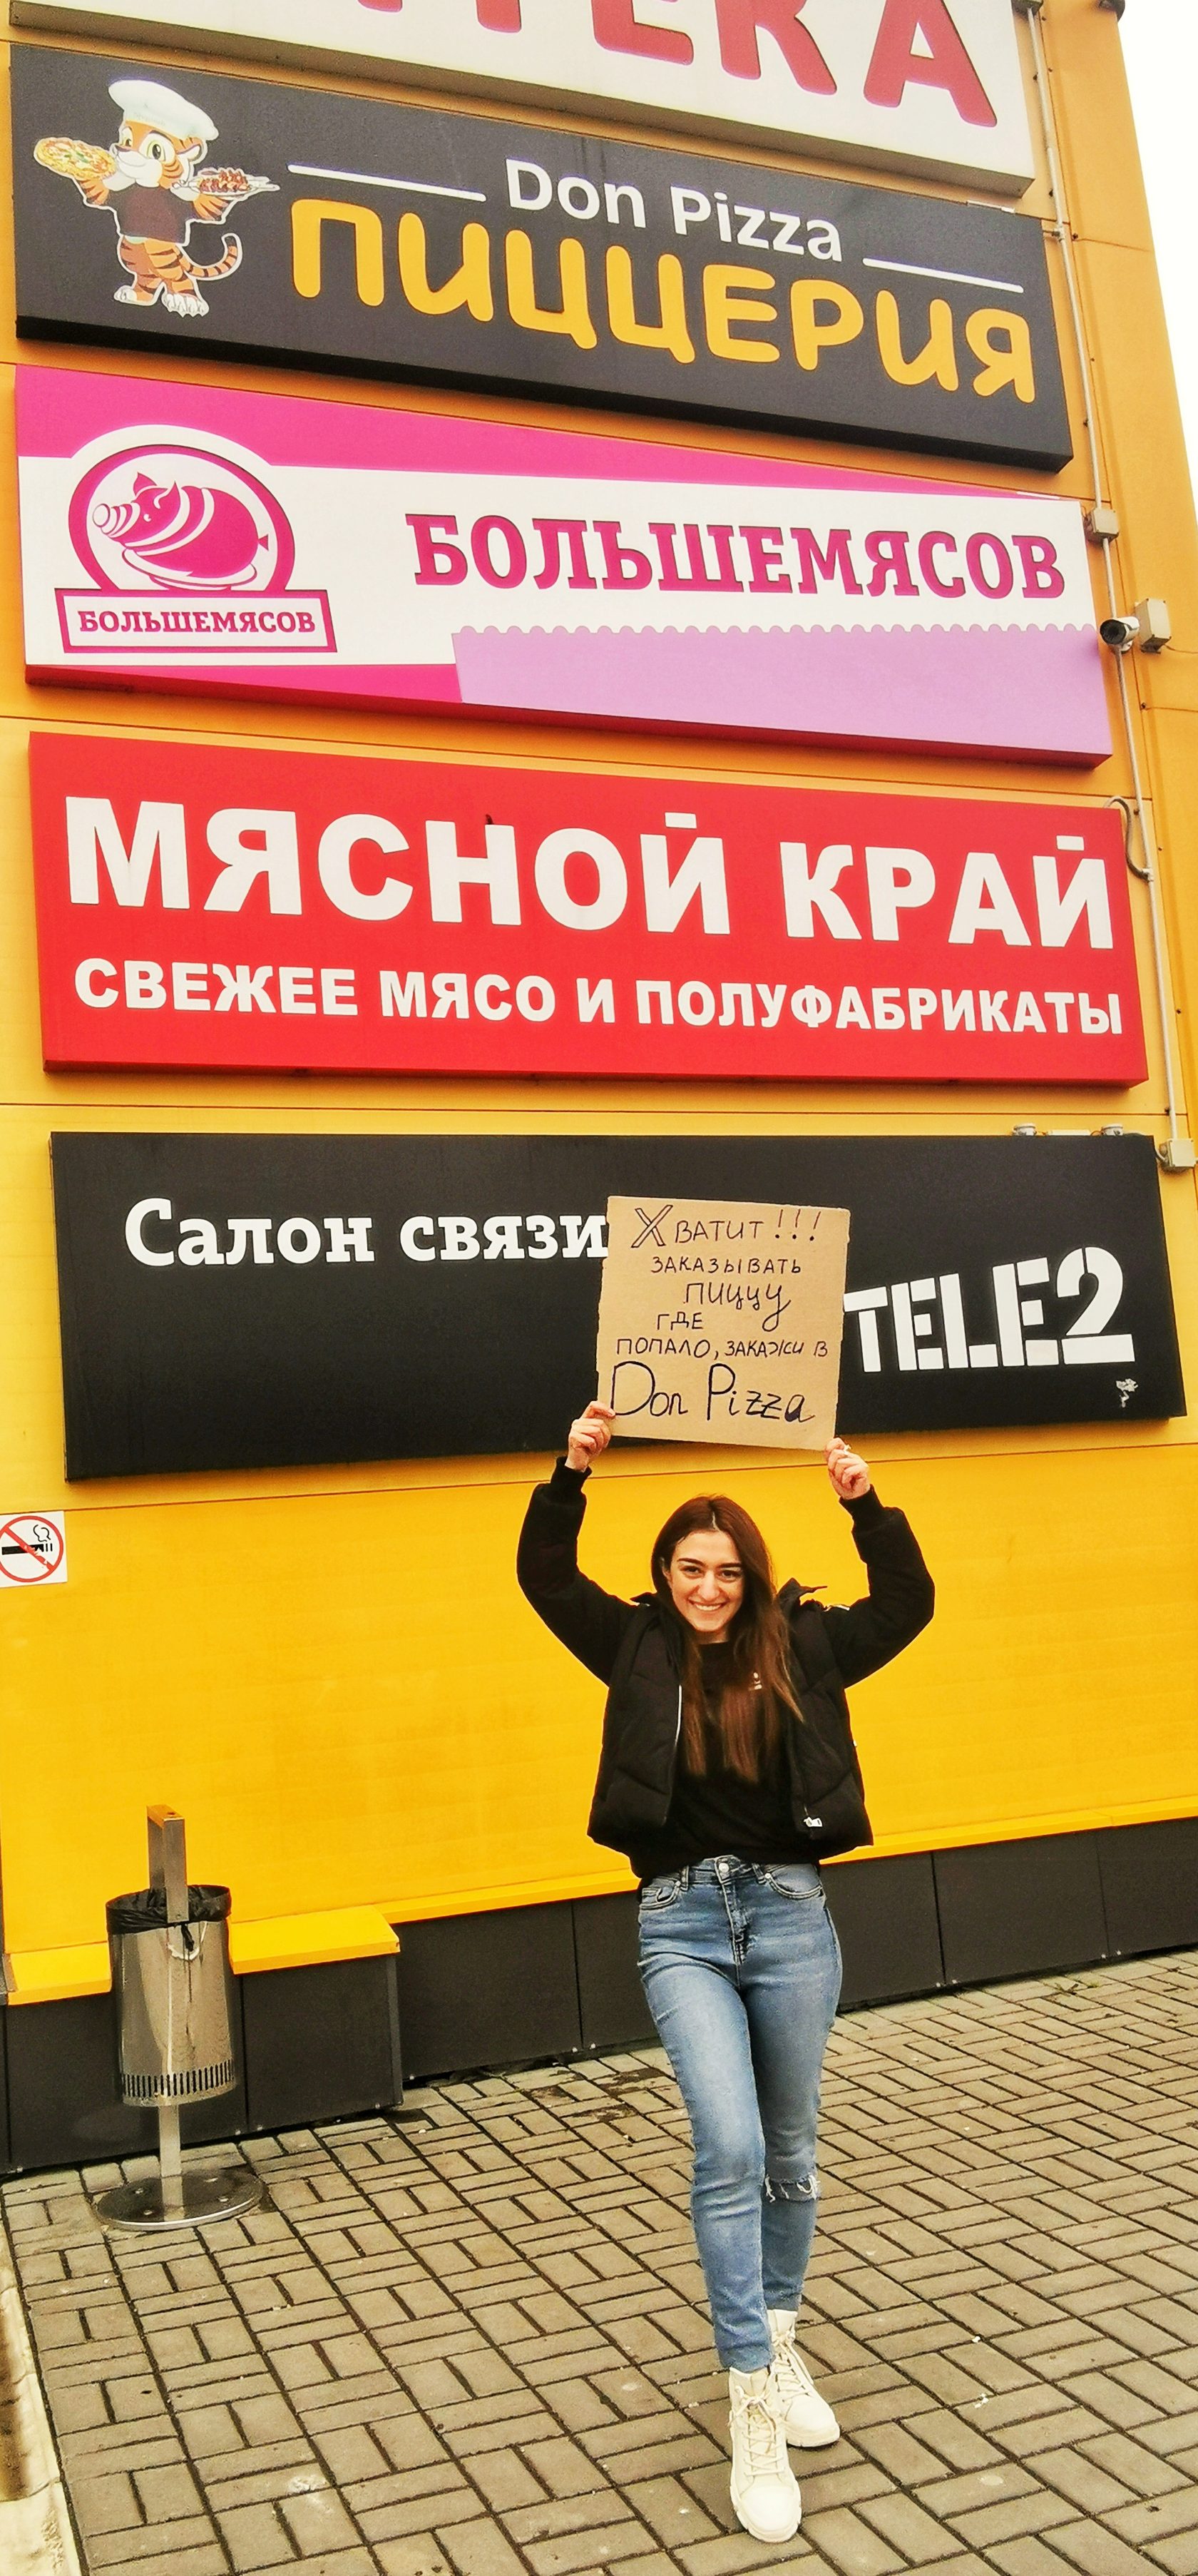 Don Pizza
ПИЦЦЕРИЯ
БОЛЬШЕМЯСОВ
БОЛЬШЕМЯСОВ
МЯСНОЙ КРАЙ
СВЕЖЕЕ МЯСО И ПОЛУФАБРИКАТЫ
Салон связи
TELE2
Хватит!!!
ЗАКАЗЫВАТЬ
пиццу
ГДЕ
ПОПАЛО, ЗАКАЖИ В
Don Pizza